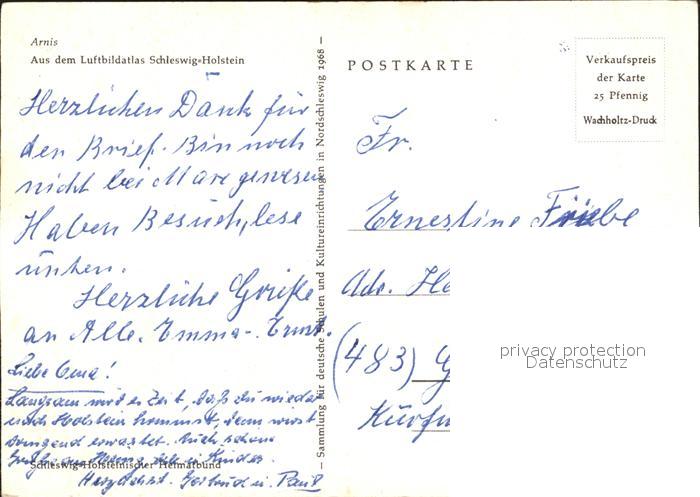 Arnis
Aus dem Luftbildatlas Schleswig-Holstein
Herzlichen Dank für
den Brief. Bin noch
nicht bei Mare gewesen
Haben Besuch, lese
unten.
Herzliche Grüße
an Alle. Emma -. Ernst.
Liebe Oma!
Langsam wird es Zeit, daß du wieder
nach Holstein kommst, denn wirst
dringend erwartet. Auch schöne
Grüße an u. Kinder.
Schleswig-Holsteinischer Heimatbund
Herzlichst. Gertrud u. Paul
— Sammlung für deutsche Schulen und Kultureinrichtungen in Nordschleswig 1968 —
POSTKARTE
Verkaufspreis
der Karte
25 Pfennig
Wachholtz-Druck
Fr.
Ernestine Friebe
Ads. He
(483) G
Kurfu
privacy protection
Datenschutz